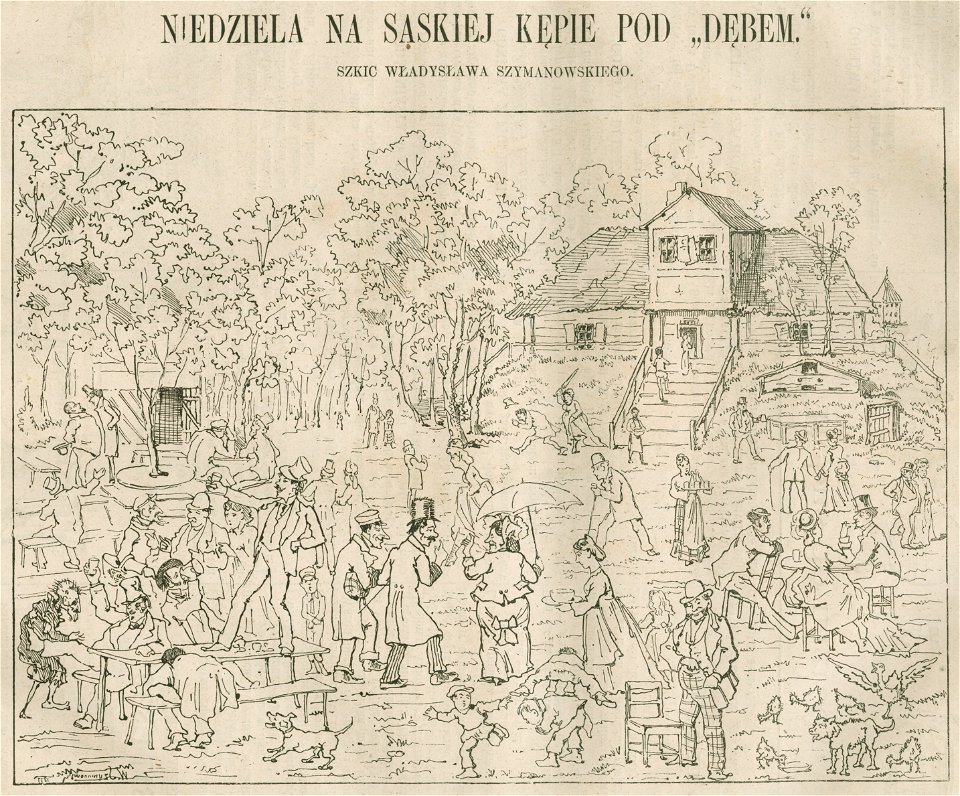 NIEDZIELA NA SĄSKIEJ KĘPIE POD „DĘBEM.“
SZKIC WŁADYSŁAWA SZYMANOWSKIEGO.